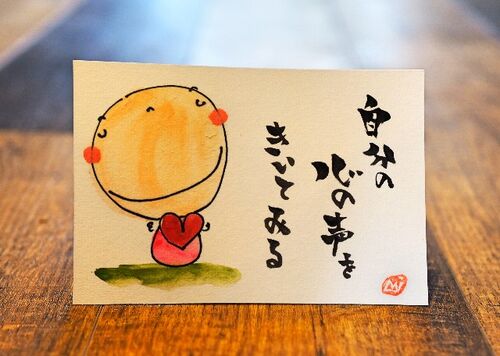 自分の
心の声を
きいてみる